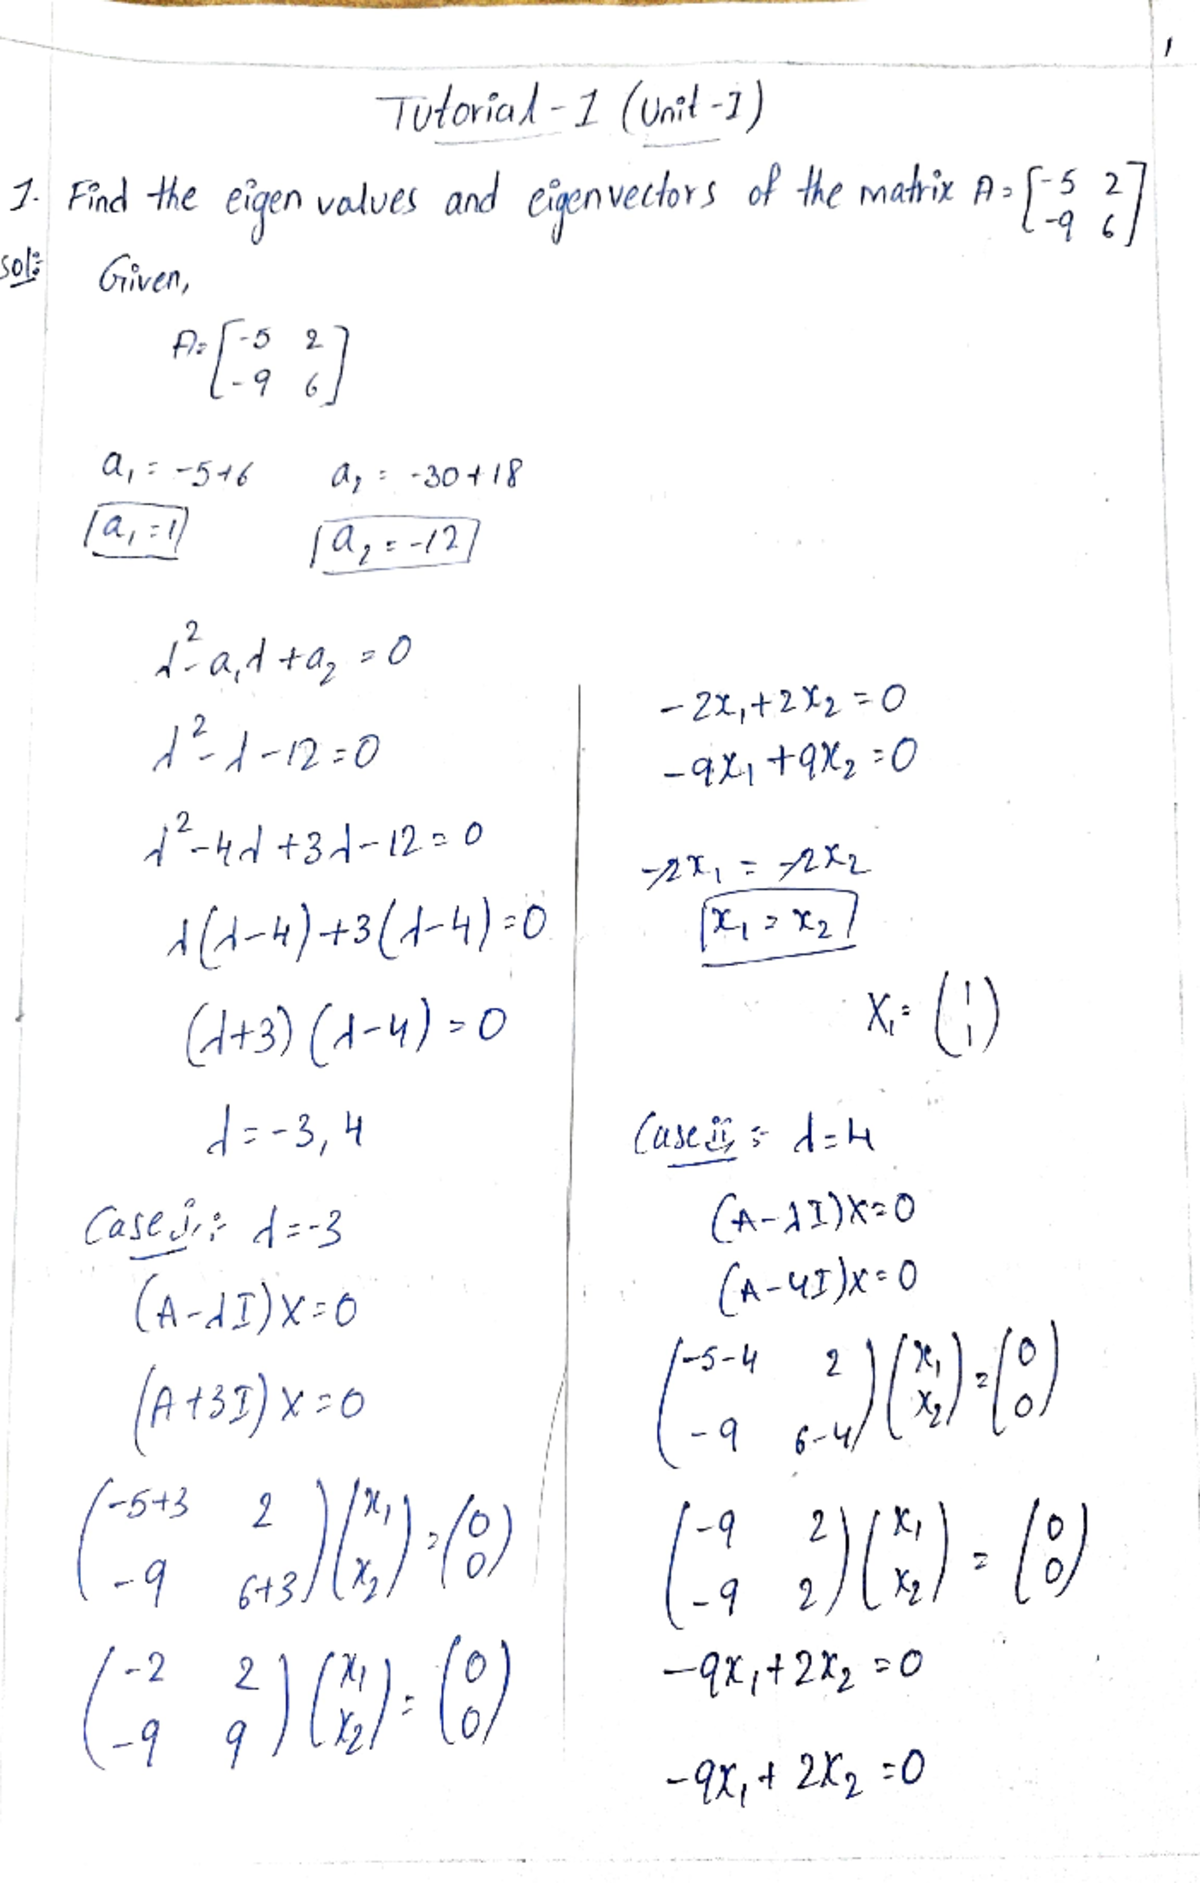 1
Tutorial-1 (Unit-I)
1. Find the eigen values and eigenvectors of the matrix A = [-5 2
-9 6]
Sol:- Given,
A = [-5 2
-9 6]
a₁ = -5+6 a₂ = -30+18
a₁ = 1 a₂ = -12
λ² - a₁λ + a₂ = 0
λ² - λ - 12 = 0
λ² - 4λ + 3λ - 12 = 0
λ(λ-4) + 3(λ-4) = 0
(λ+3) (λ-4) = 0
λ = -3, 4
Case i,:- λ = -3
(A - λI) X = 0
(A + 3I) X = 0
(-5+3 2
-9 6+3) (x₁
x₂) = (0
0)
(-2 2
-9 9) (x₁
x₂) = (0
0)
-2x₁ + 2x₂ = 0
-9x₁ + 9x₂ = 0
-2x₁ = -2x₂
x₁ = x₂
X₁ = (1
1)
Case ii, :- λ = 4
(A - λI)X = 0
(A - 4I)X = 0
(-5-4 2
-9 6-4) (x₁
x₂) = (0
0)
(-9 2
-9 2) (x₁
x₂) = (0
0)
-9x₁ + 2x₂ = 0
-9x₁ + 2x₂ = 0